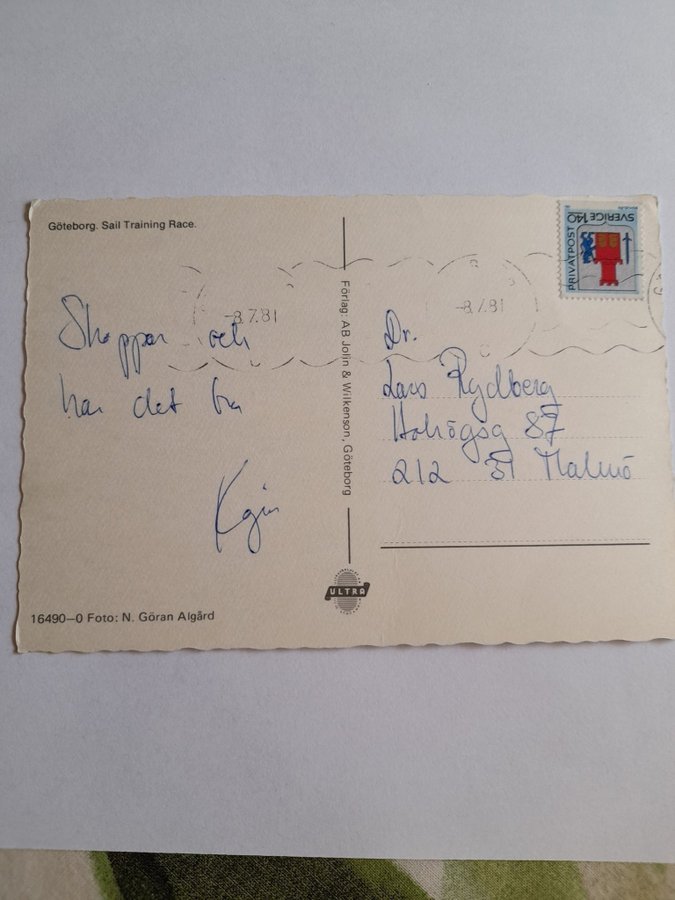 Göteborg. Sail Training Race.
PRIVATPOST
SVERIGE 140
-8.7.81
-8.7.81
Shoppar och
har det bra
Förlag: AB Jolin & Wilkenson, Göteborg
Dr.
Lars Rydberg
87
212 31 Malmö
ULTRA
16490—0 Foto: N. Göran Algård